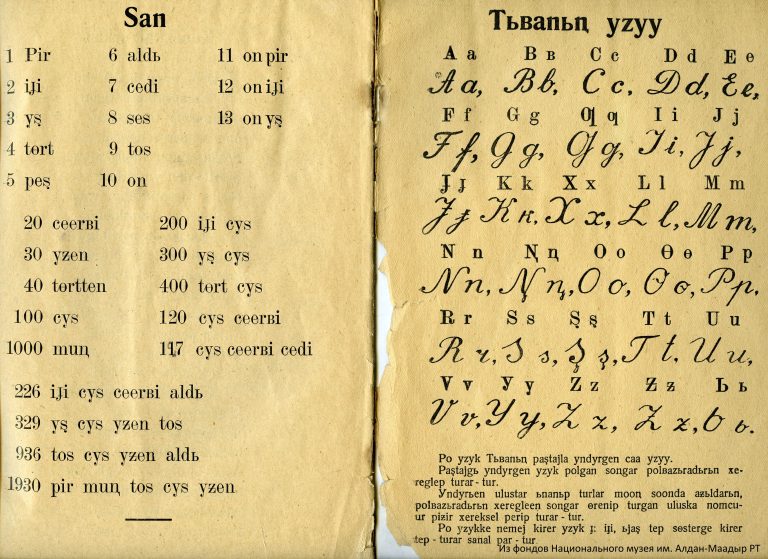 San
1 Pir 6 aldь 11 on pir
2 iɉi 7 cedi 12 on iɉi
3 yş 8 ses 13 on yş
4 tɵrt 9 tos
5 peş 10 on
20 ceerʙi 200 iɉi cys
30 yzen 300 yş cys
40 tɵrtten 400 tɵrt cys
100 cys 120 cys ceerʙi
1000 muꞑ 117 cys ceerʙi cedi
226 iɉi cys ceerʙi aldь
329 yş cys yzen tos
936 tos cys yzen aldь
1930 pir muꞑ tos cys yzen
Tьʙanьꞑ yzyy
A a B ʙ C c D d E e
Aa, Bb, Cc, Dd, Ee,
F f G g Ƣ ƣ I i J j
Ff, Gg, Ƣƣ, Ii, Jj,
Ɉ ɉ K k X x L l M m
Ɉɉ, Kк, Xx, Ll, Mm,
N n Ꞑ ꞑ O o Ɵ ɵ P p
Nn, Ꞑꞑ, Oo, Ɵɵ, Pp,
R r S s Ş ş T t U u
Rr, Ss, Şş, Tt, Uu,
V v У y Z z Ƶ ƶ Ь ь
Vv, Yy, Zz, Ƶƶ, Ьь.
Po yzyk Tьʙanьꞑ paştajla yndyrgen caa yzyy.
Paştajgь yndyrgen yzyk polgan soꞑgar polʙazьradьrьn xe-
reglep turar-tur.
Yndyrьen ulustar ьnanьp turlar mooꞑ soonda azьldarьn,
polʙazьradьrьn xeregleen soꞑgar ɵrenip turgan uluska nomcu-
ur pizir xereksel perip turar-tur.
Po yzykke nemej kirer yzyk ɉ: iɉi, ьɉaş tep sɵsterge kirer
tep-turar sanal par-tur.
Из фондов Национального музея им. Алдан-Маадыр РТ